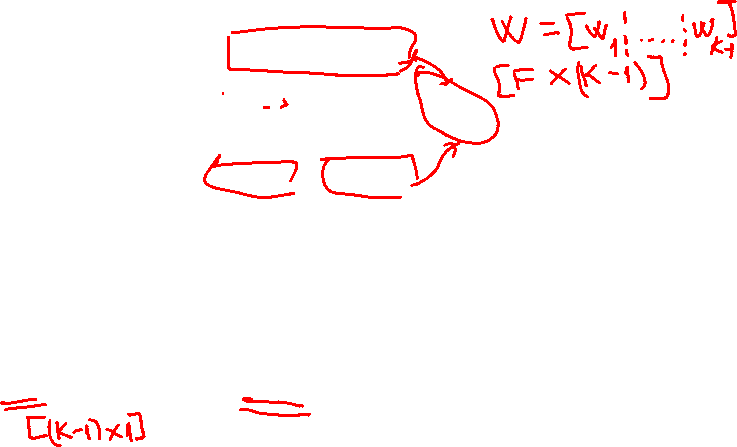 W = [w₁ ⋮ ..... ⋮ w_{K-1}]
[F × (K-1)]
[(K-1) × 1]